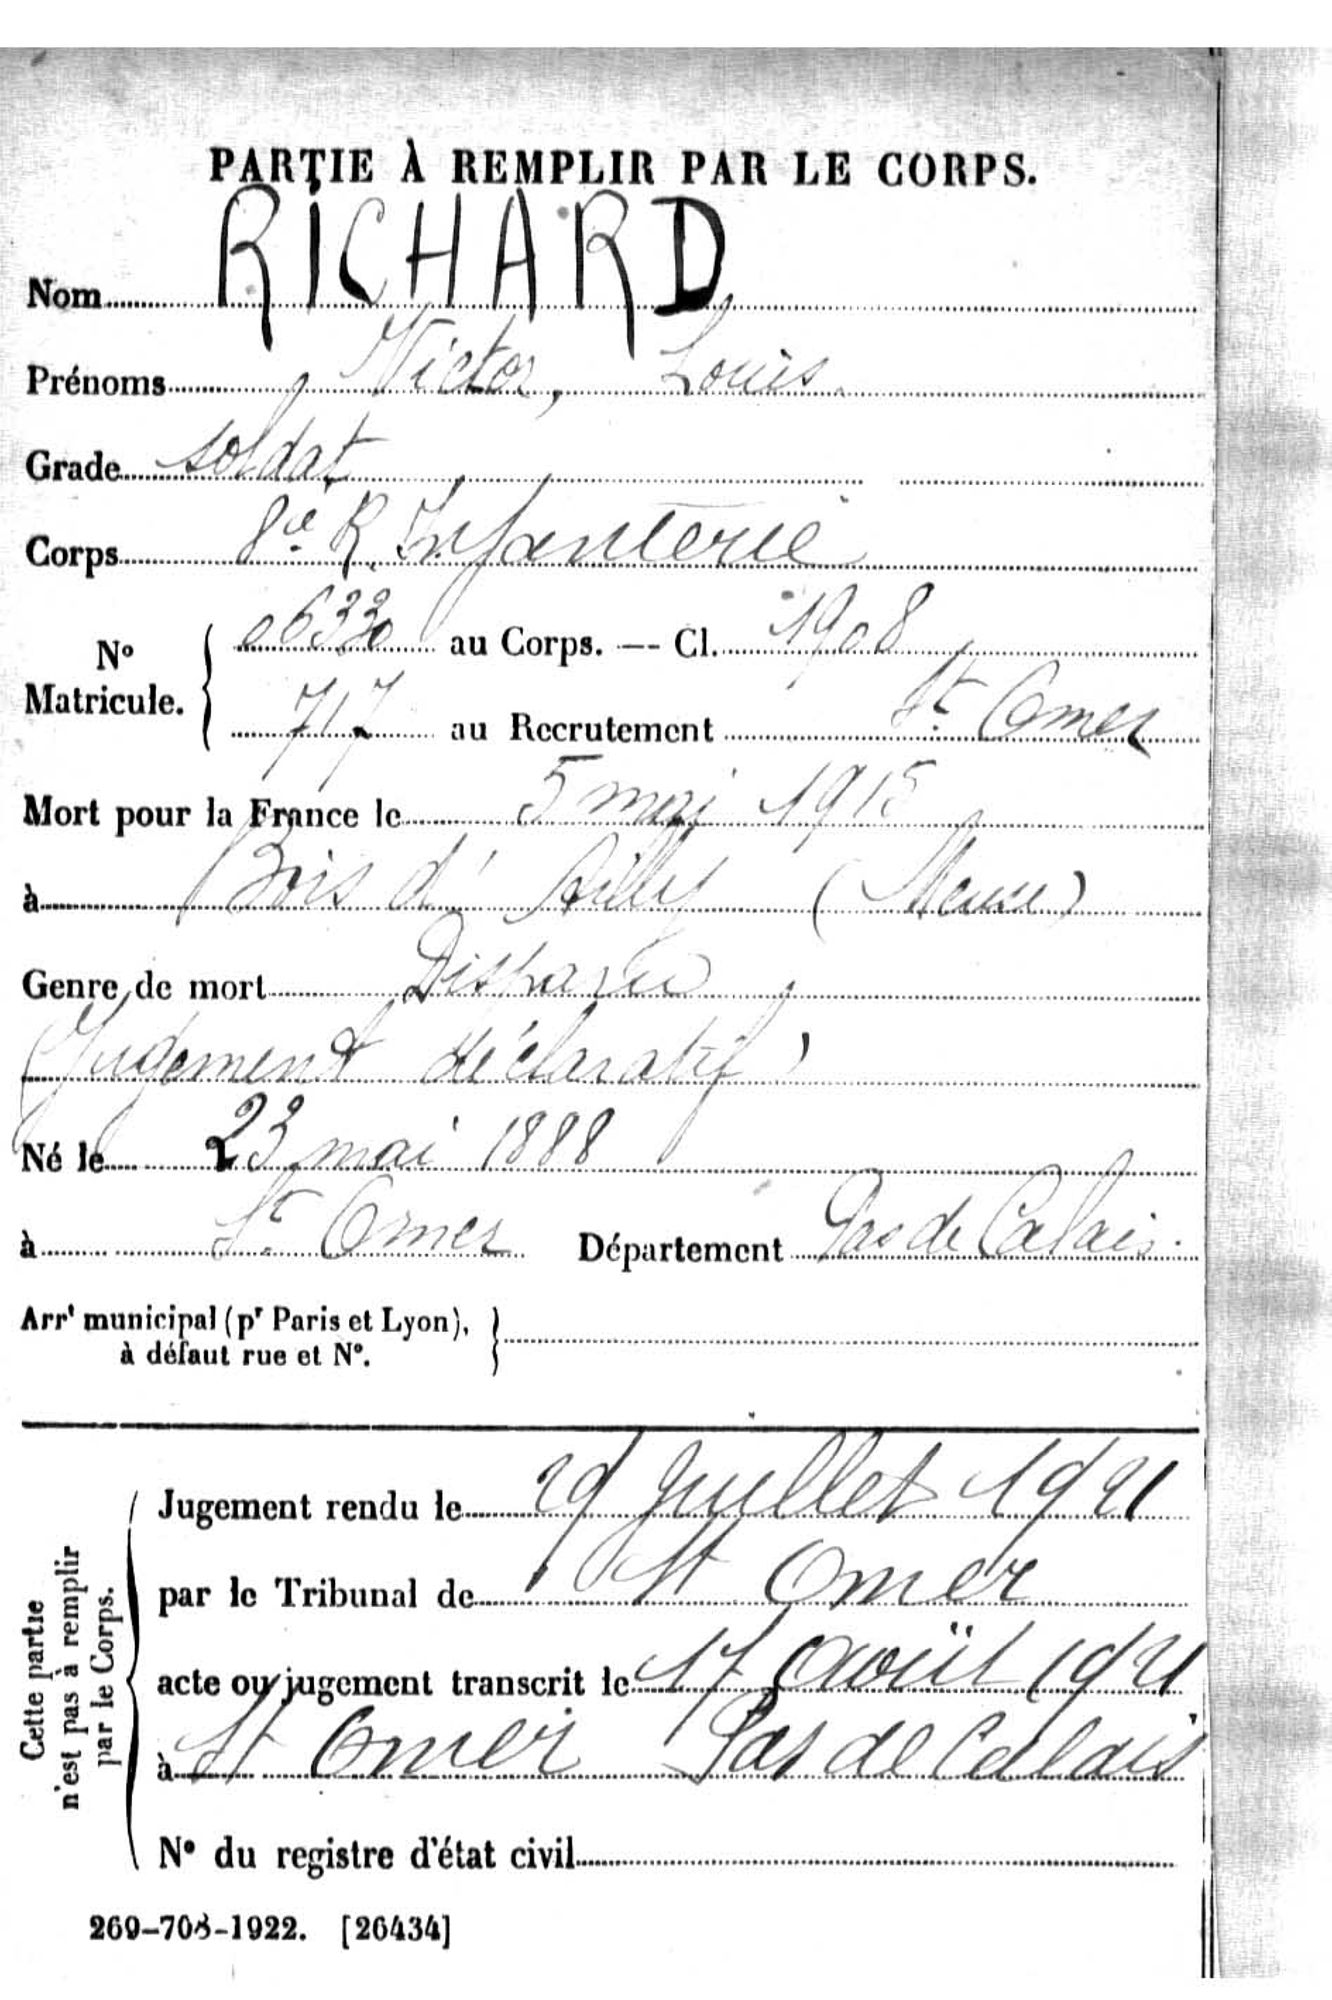 PARTIE À REMPLIR PAR LE CORPS.
Nom RICHARD
Prénoms Victor, Louis
Grade soldat
Corps 8ie R. Infanterie
No Matricule. { 06330 au Corps. — Cl. 1908
717 au Recrutement St. Omer
Mort pour la France le 5 mai 1915
à Bois d'Ailly (Meuse)
Genre de mort Disparu
(Jugement déclaratif)
Né le 23 mai 1888
à St. Omer Département Pas de Calais.
Arrt municipal (pr Paris et Lyon), à défaut rue et No. }
Cette partie n'est pas à remplir par le Corps.
Jugement rendu le 29 Juillet 1921
par le Tribunal de St Omer
acte ou jugement transcrit le 17 Août 1921
à St Omer Pas de Calais
No du registre d'état civil
269-708-1922. [26434]